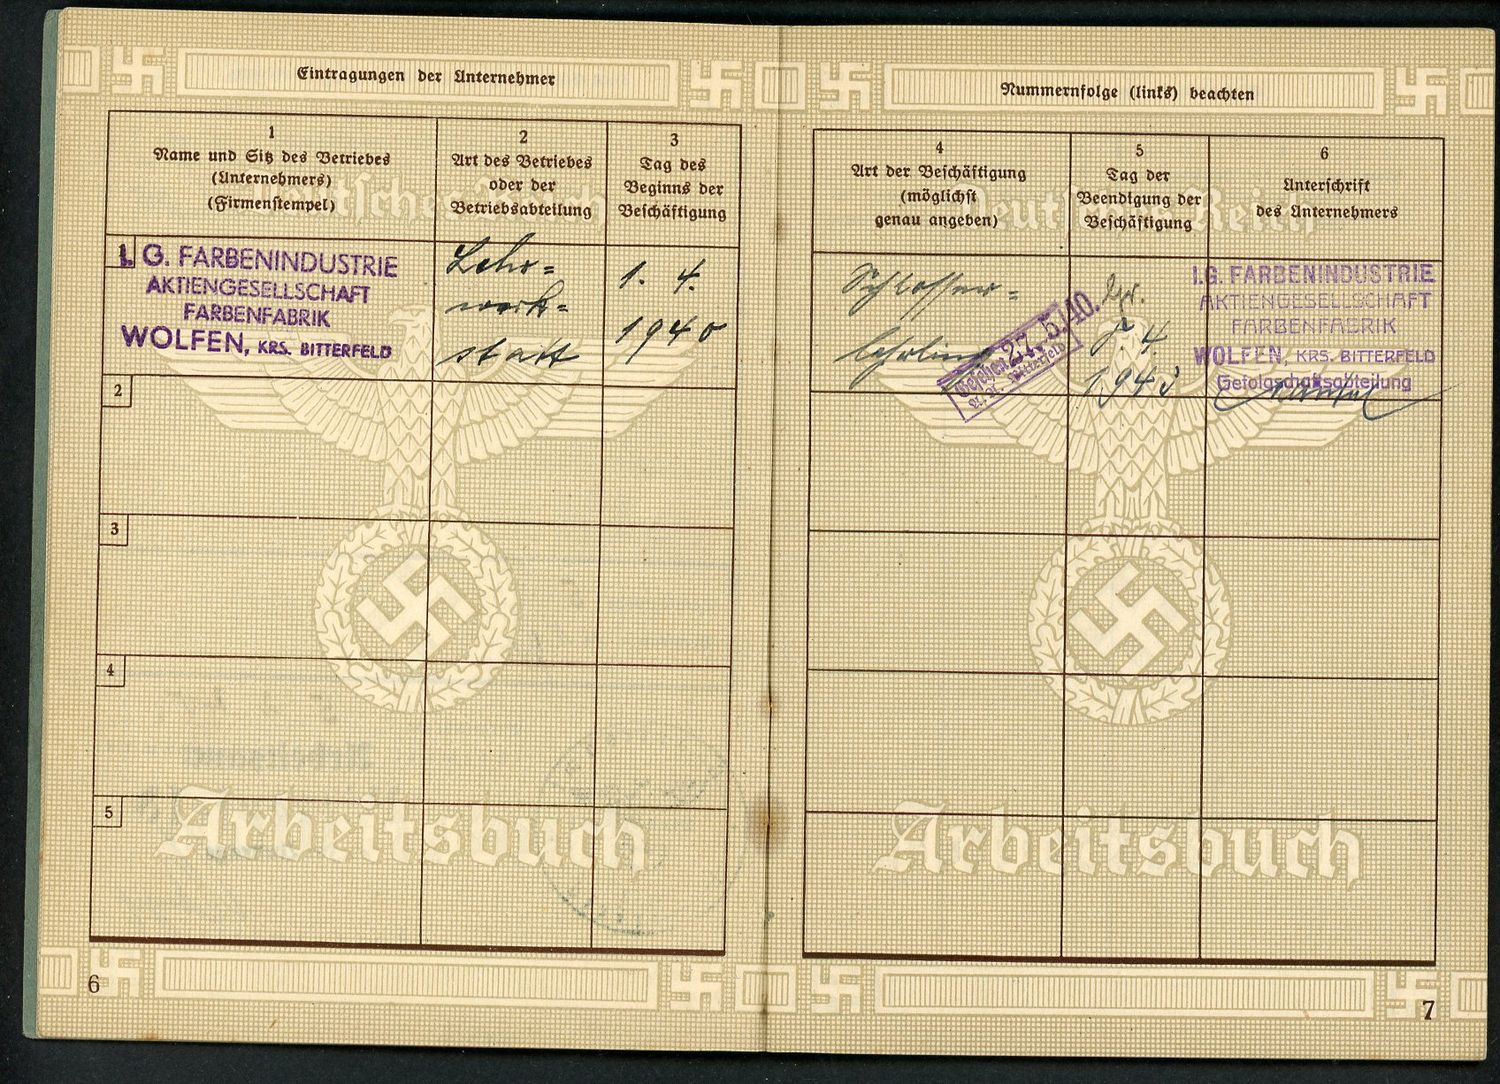 Eintragungen der Unternehmer
1
Name und Sitz des Betriebes
(Unternehmers)
(Firmenstempel)
2
Art des Betriebes
oder der
Betriebsabteilung
3
Tag des
Beginns der
Beschäftigung
1
I. G. FARBENINDUSTRIE
AKTIENGESELLSCHAFT
FARBENFABRIK
WOLFEN, KRS. BITTERFELD
Lehr=
werk=
statt
1. 4.
1940
2
3
4
5
Deutsches Reich
Arbeitsbuch
6
Nummernfolge (links) beachten
4
Art der Beschäftigung
(möglichst
genau angeben)
5
Tag der
Beendigung der
Beschäftigung
6
Unterschrift
des Unternehmers
Schlosser=
lehrling
Gesehen 27. 5. 40.
A. A. Bitterfeld
4.
1943
I.G. FARBENINDUSTRIE
AKTIENGESELLSCHAFT
FARBENFABRIK
WOLFEN, KRS. BITTERFELD
Gefolgschaftsabteilung
Deutsches Reich
Arbeitsbuch
7